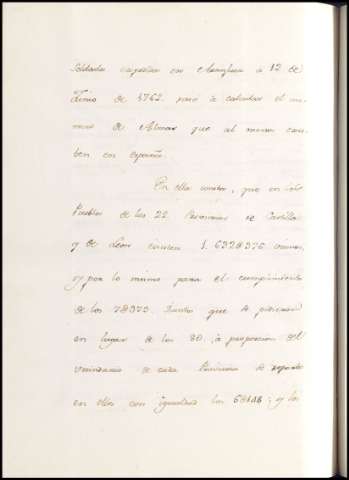 Soldados expedida en Aranjuez à 12 de
Junio de 1762. pasó à calcular el nu-
mero de Almas que al menos exis-
ten en España.
En ella consta, que en los
Pueblos de las 22. Provincias de Castilla
y de Leon existen 1.632@376 vecinos,
y por lo mismo para el cumplimiento
de los 7@973. que se pidieron
en lugar de los 80. à proporcion del
vecindario de cada Provincia se reparte
en ellos con igualdad los 6@
; y los